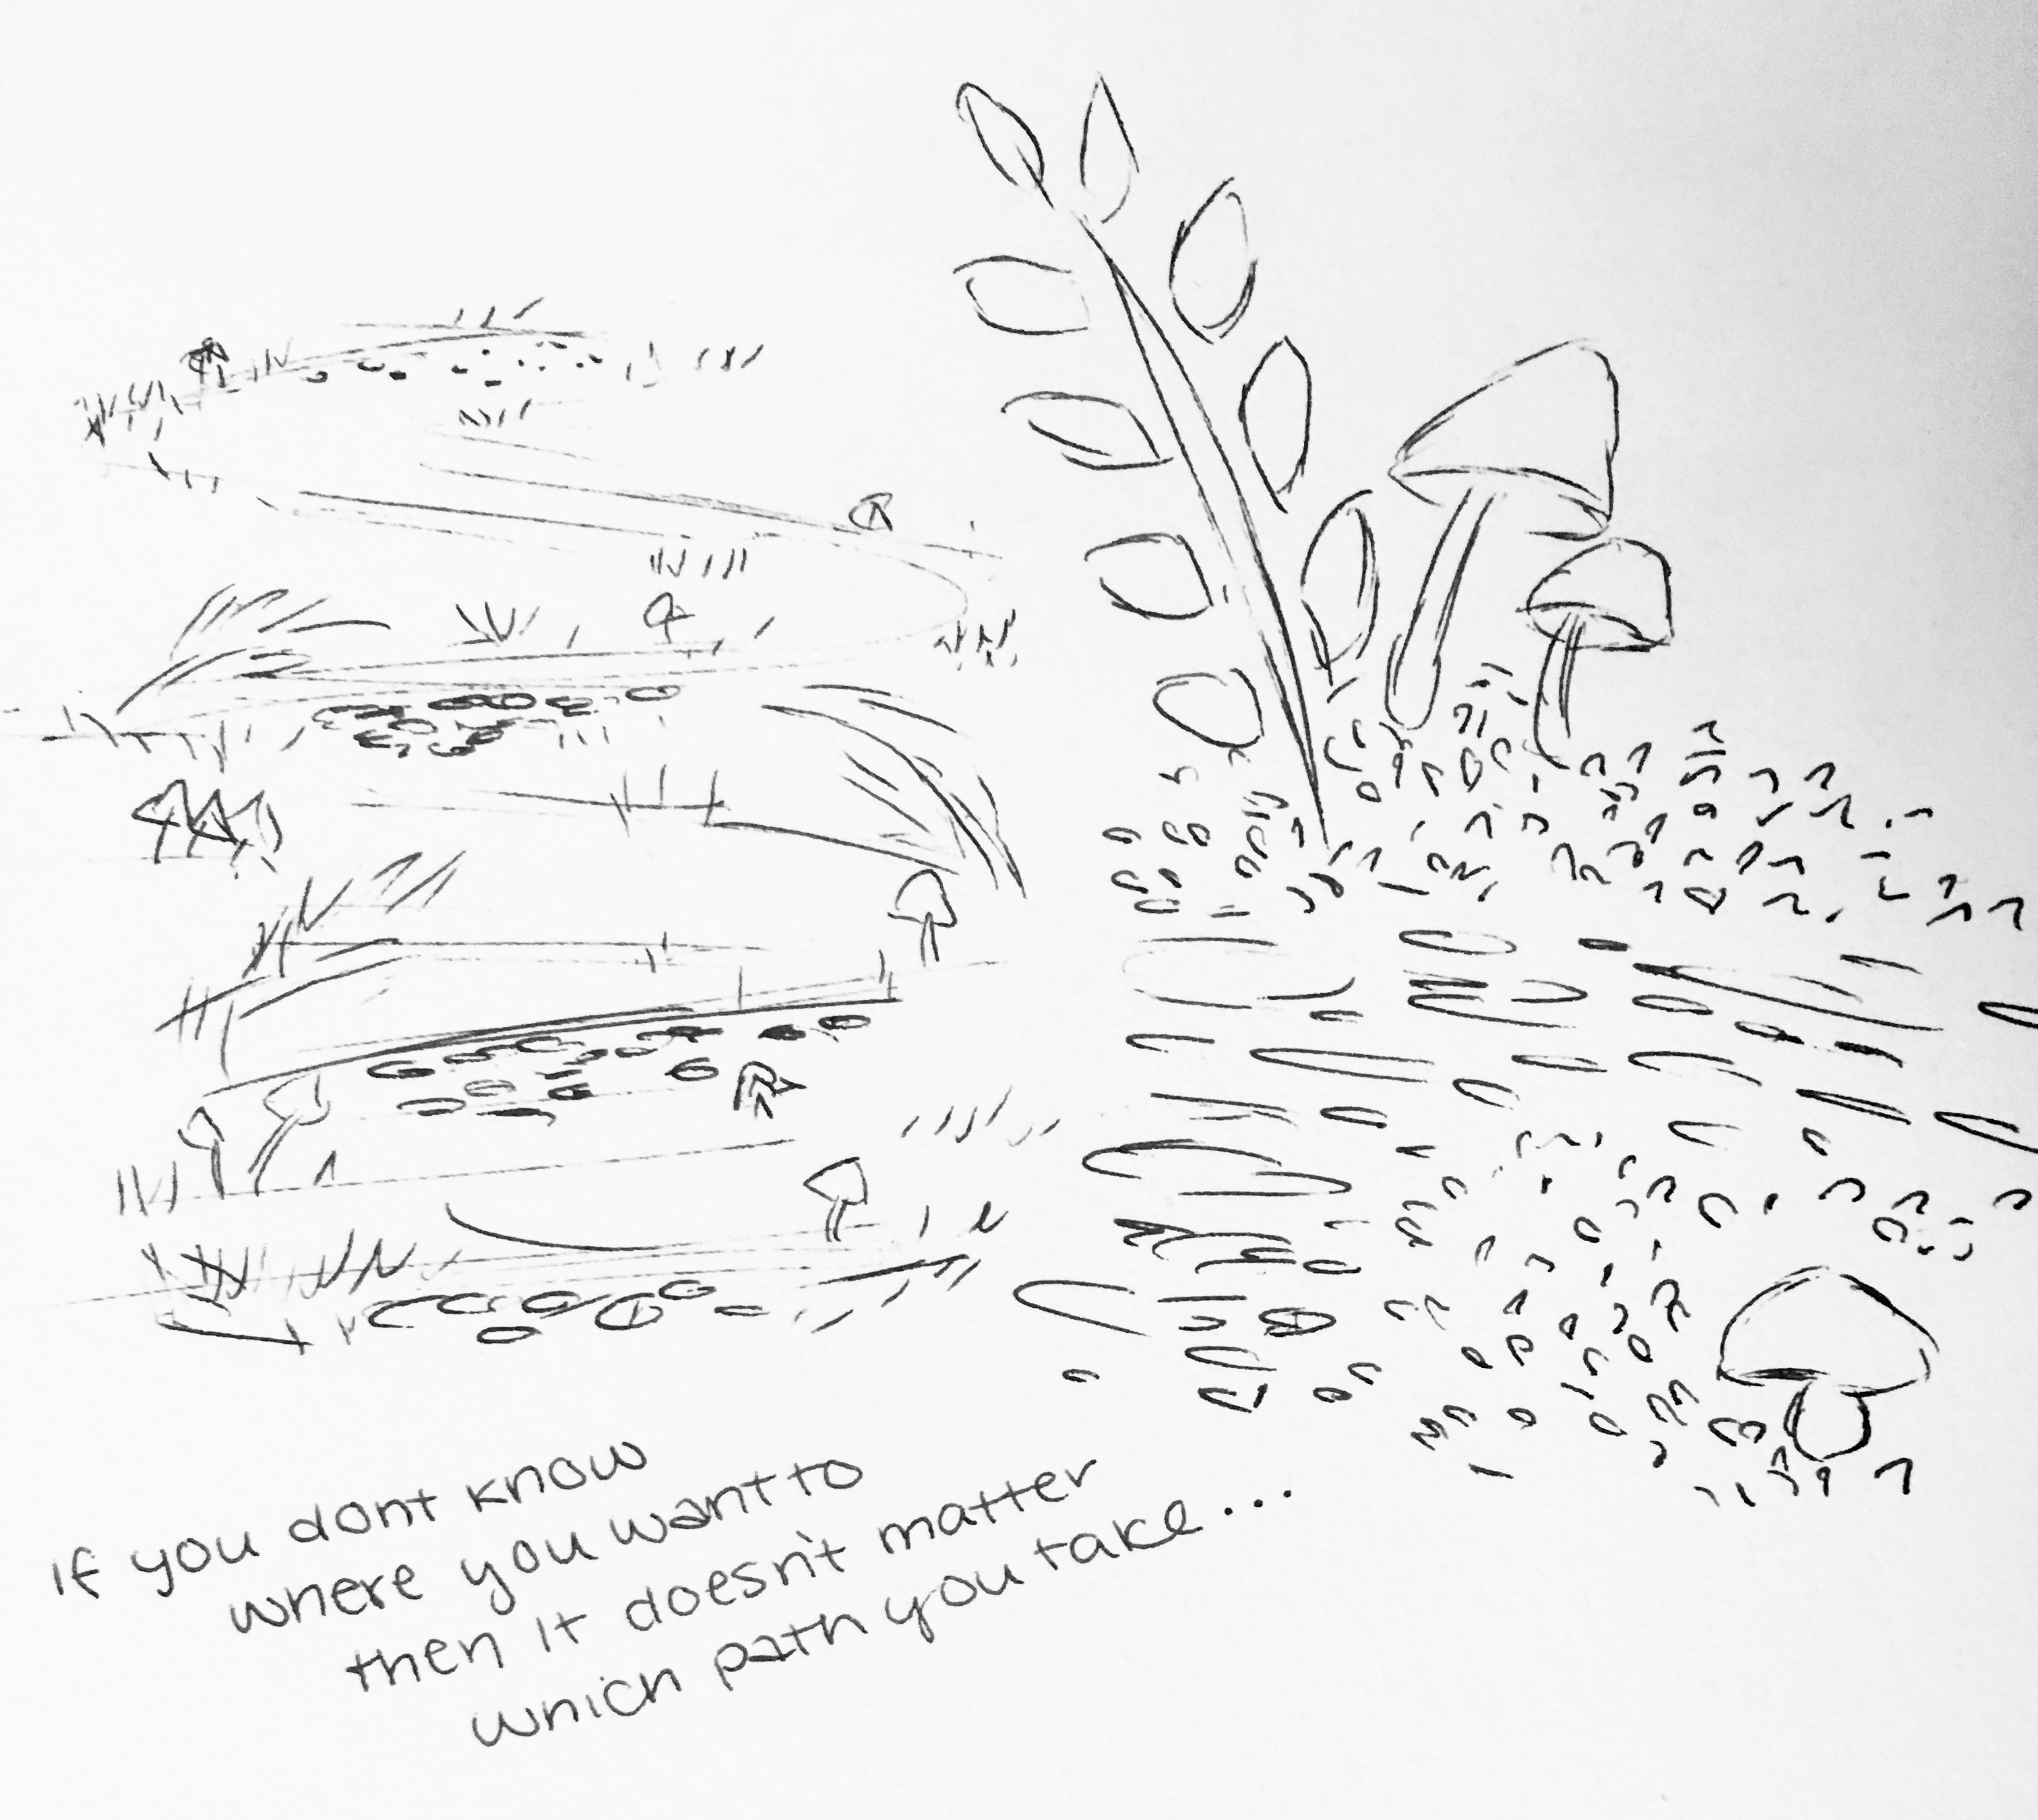 If you dont know
where you want to
then it doesn't matter
which path you take...